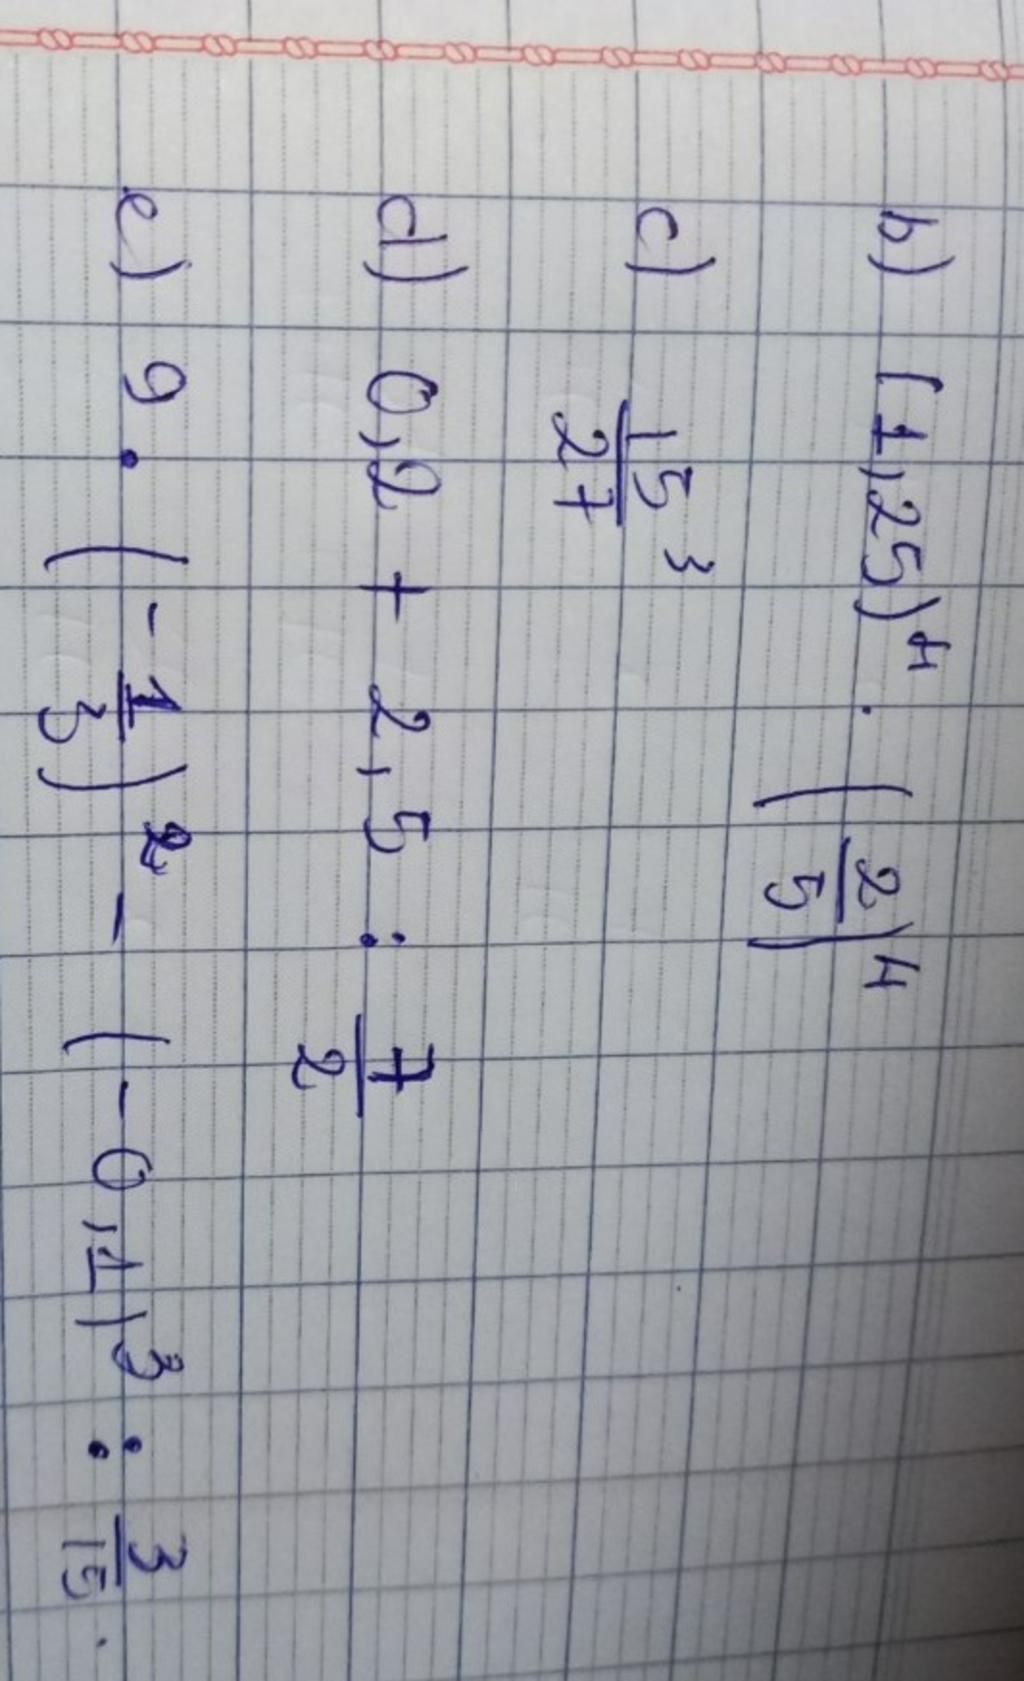 b) (1,25)⁴ . (2/5)⁴
c) 15³/27
d) 0,2 + 2,5 : 7/2
e) 9 . (-1/3)² - (-0,1)³ : 3/15 .